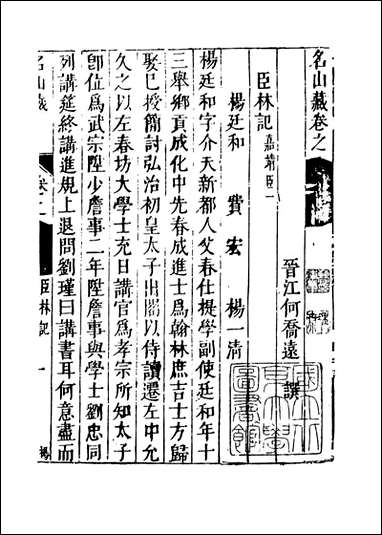 名山藏卷之
晉江何喬遠 撰
臣林記 嘉靖臣一
楊廷和 費宏 楊一清
楊廷和字介夫新都人父春仕提學副使廷和年十
三舉鄉貢成化中先春成進士爲翰林庶吉士方歸
娶已授簡討弘治初皇太子出閣以侍讀遷左中允
久之以左春坊大學士充日講官爲孝宗所知太子
卽位爲武宗陞少詹事二年陞詹事與學士劉忠同
列講筵終講進規上退問劉瑾曰講書耳何意盡而
名山藏 卷之 臣林記 一 楊